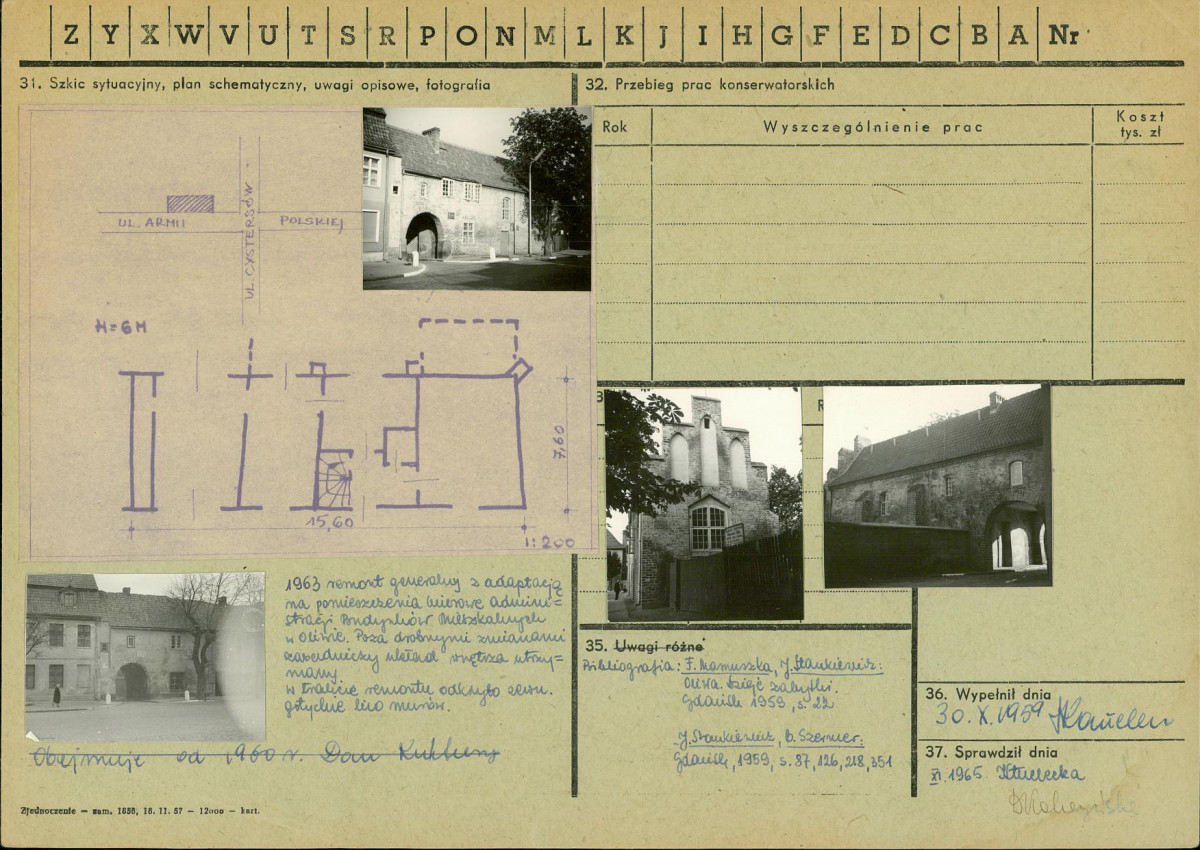 Z Y X W V U T S R P O N M L K J I H G F E D C B A Nr
31. Szkic sytuacyjny, plan schematyczny, uwagi opisowe, fotografia
UL. ARMII POLSKIEJ
UL. CYSTERSÓW
H=6M
7,60
15,60
1:200
1963 remont generalny z adaptacją
na pomieszczenia biurowe admini-
stracji Budynków Mieszkalnych
w Oliwie. Poza drobnymi zmianami
zasadniczy układ wnętrza utrzy-
many.
w trakcie remontu odkryto elewn.
gotyckie lico murów.
Obejmuje od 1960 r. Dom Kultury
Zjednoczenie — zam. 1858, 18. 11. 57 — 12000 — kart.
32. Przebieg prac konserwatorskich
Rok
Wyszczególnienie prac
Koszt
tys. zł
35. Uwagi różne
Bibliografia: F. Mamuszka, J. Stankiewicz:
Oliwa. Dzieje zabytki.
Gdańsk 1959, s. 22
J. Stankiewicz, B. Szermer:
Gdańsk, 1959, s. 87, 126, 218, 351
36. Wypełnił dnia
30. X. 1959
37. Sprawdził dnia
XI. 1965